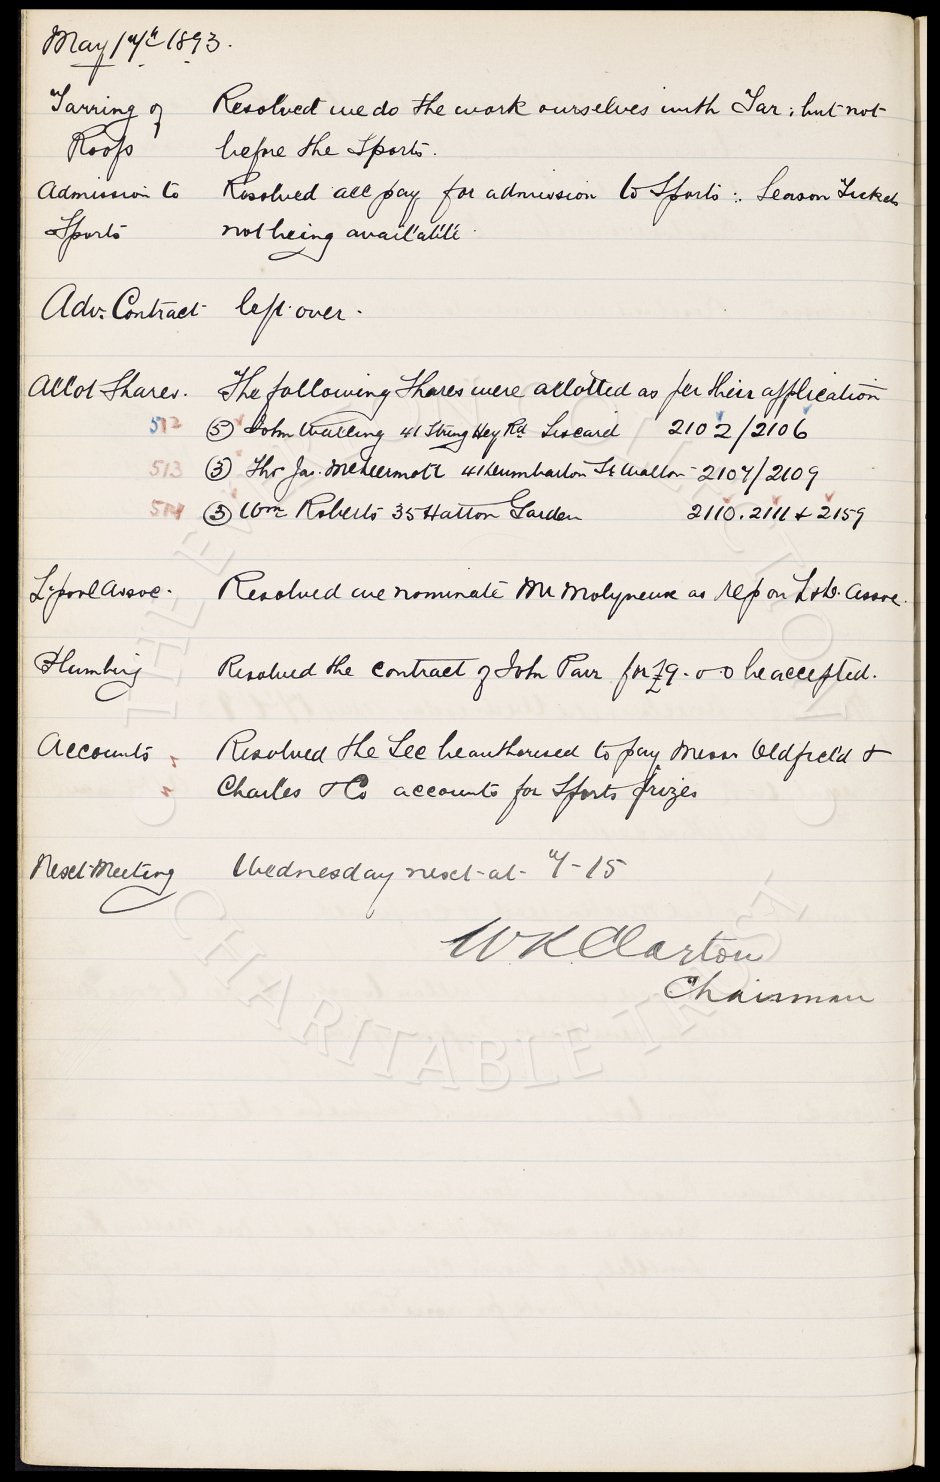 May 17th 1893.
Tarring of Resolved we do the work ourselves with Tar: but not
Roofs before the Sports.
Admission to Resolved all pay for admission to Sports: Season Tickets
Sports not being available.
Adv. Contract left over.
Allot Shares. The following Shares were allotted as per their application
512 (5) John Watling 41 String Hey Rd Liscard 2102/2106
513 (3) Thos Jas. McDermott 41 Dumbarton St Walton 2107/2109
514 (3) Wm Roberts 35 Hatton Garden 2110. 2111 & 2159
L'pool Assoc. Resolved we nominate Mr Molyneux as rep on L. Assoc.
Plumbing Resolved the contract of John Parr for £9-0-0 be accepted.
Accounts Resolved the Sec be authorised to pay Messrs Oldfield &
Charles & Co accounts for Sports prizes
Next Meeting Wednesday next at 7-15
W.K. Clayton
Chairman
THE EVERTON COLLECTION
CHARITABLE TRUST